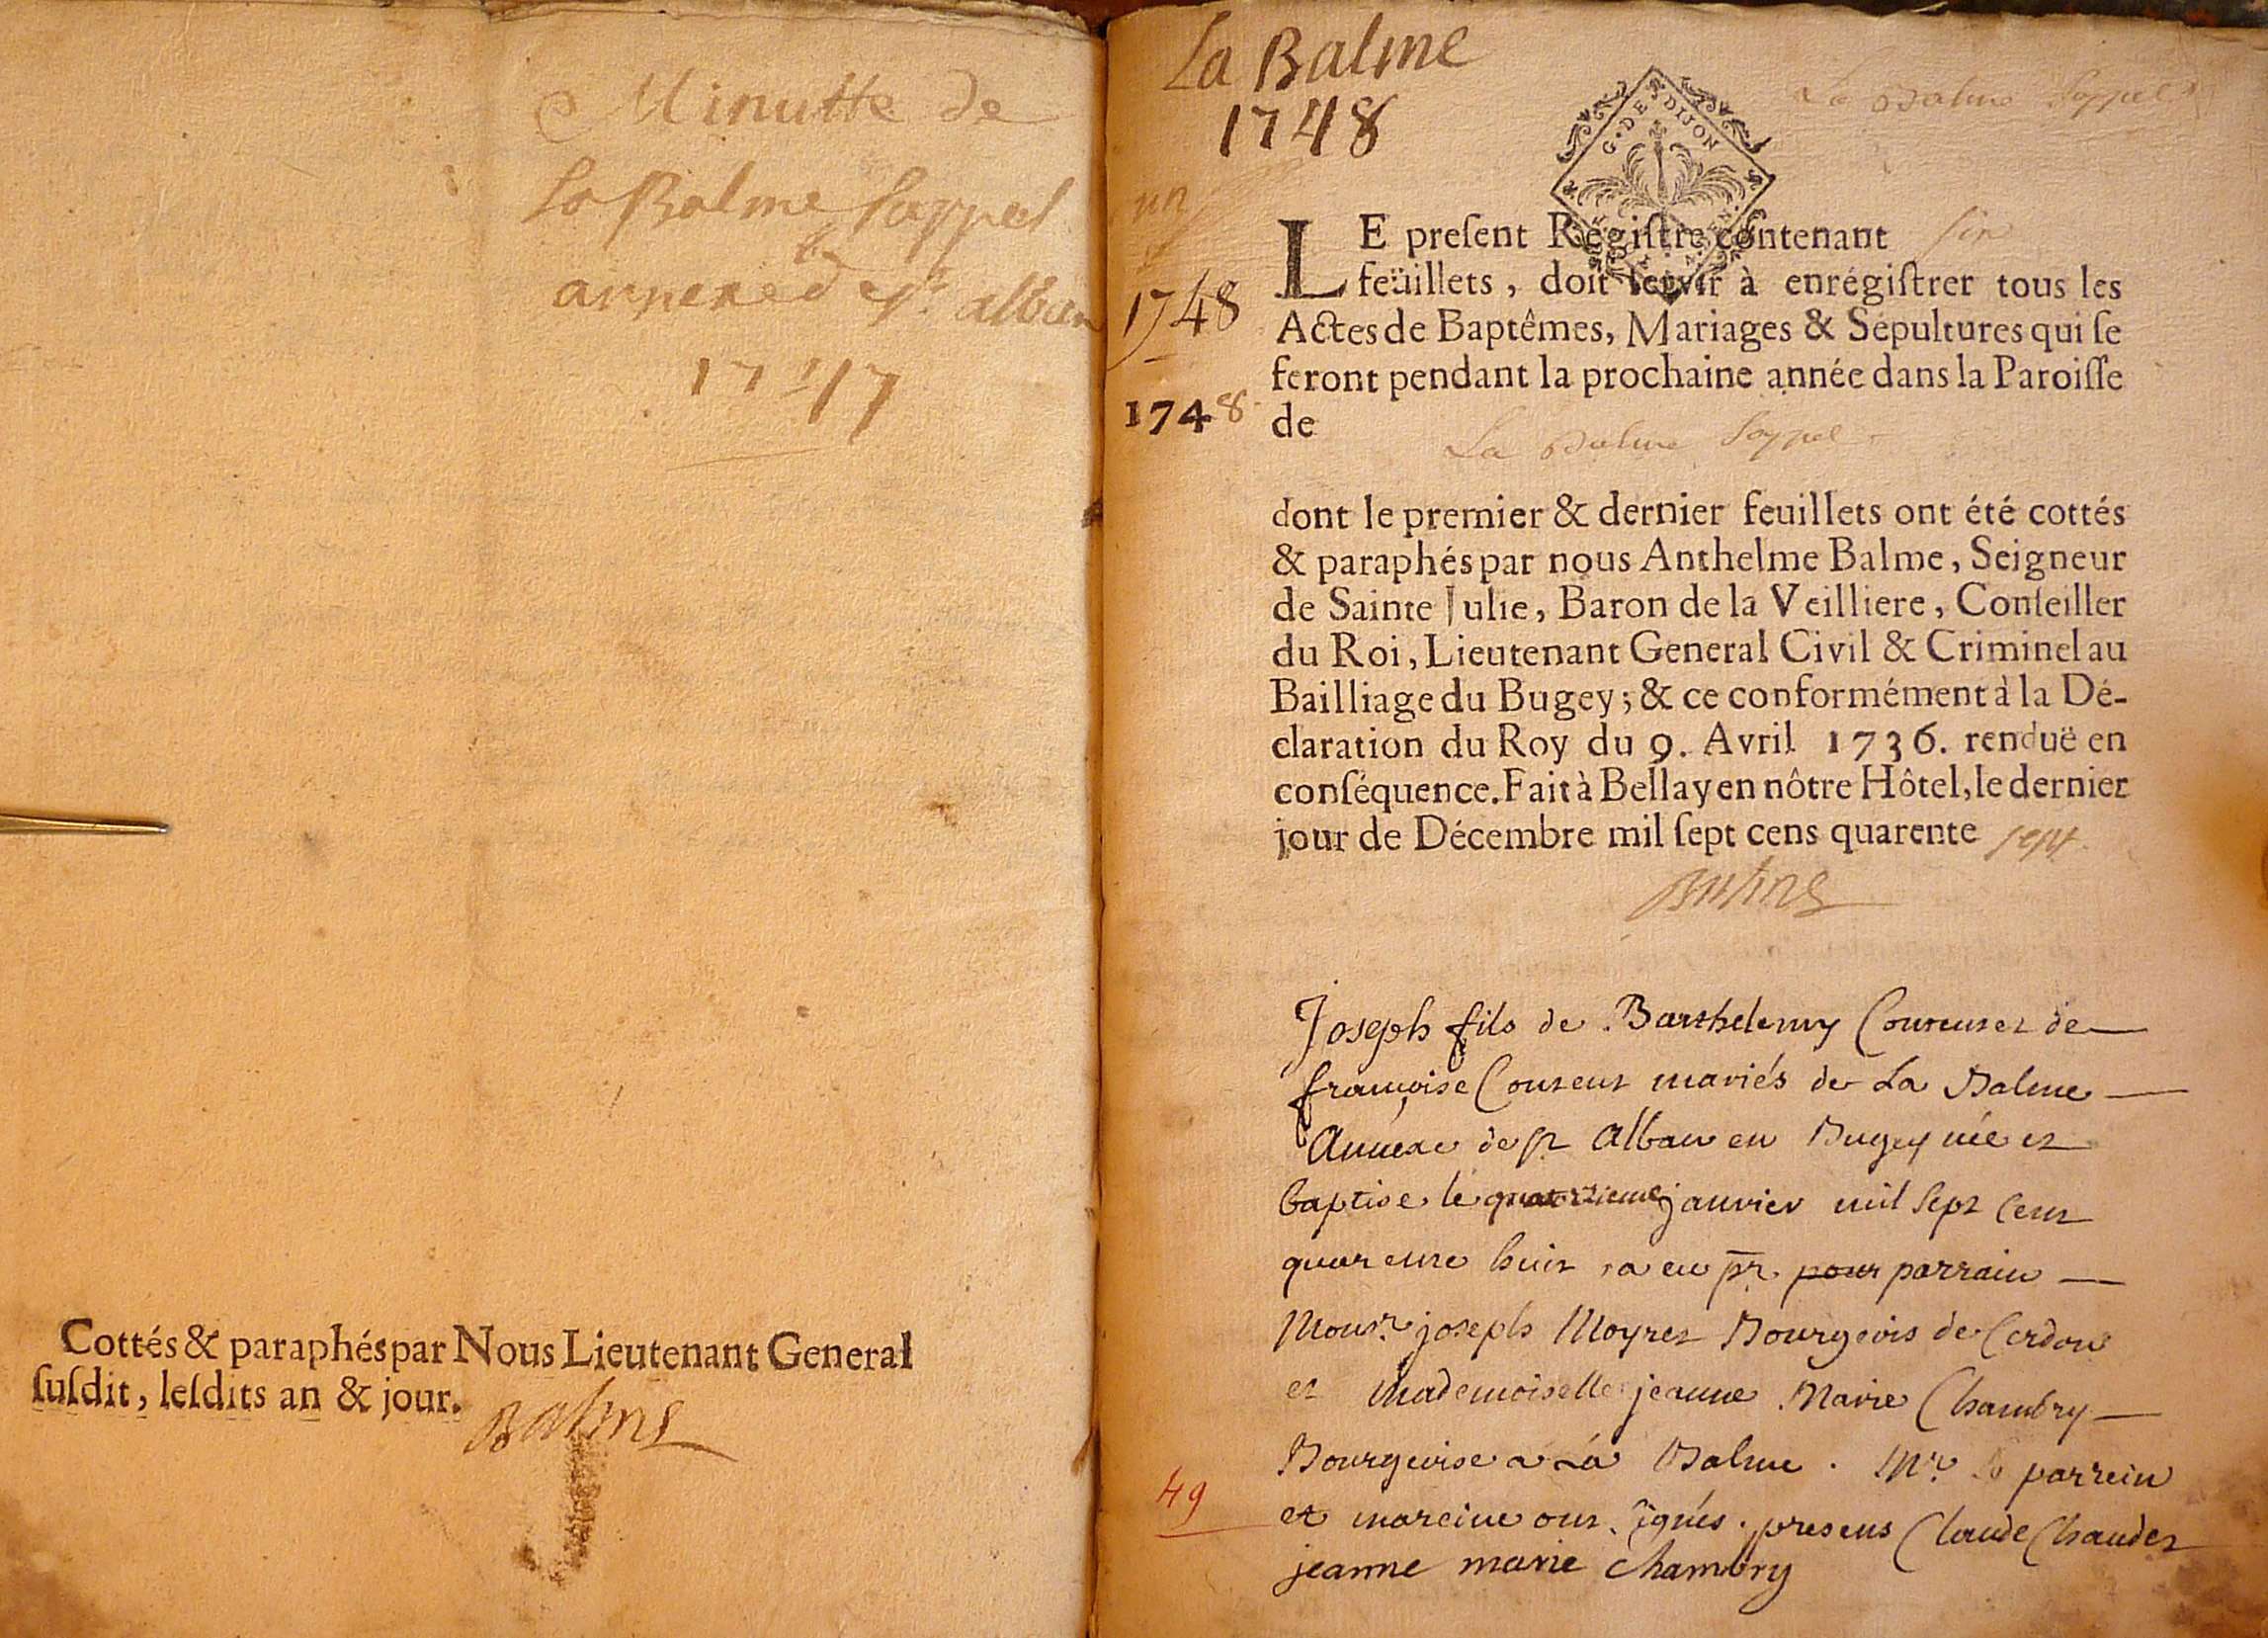 Minutte de
La Balme Sappel
annexe de st alban
1747
Cottés & paraphés par Nous Lieutenant General
ſuſdit, leſdits an & jour.
Balme
La Balme
1748
La Balme Sappel
G. DE DIJON
1748
1748
LE preſent Régiſtre contenant six
feüillets, doit ſervir à enrégiſtrer tous les
Actes de Baptêmes, Mariages & Sépultures qui ſe
feront pendant la prochaine année dans la Paroiſſe
de La Balme Sappel
dont le premier & dernier feuillets ont été cottés
& paraphés par nous Anthelme Balme, Seigneur
de Sainte Julie, Baron de la Veilliere, Conſeiller
du Roi, Lieutenant General Civil & Criminel au
Bailliage du Bugey; & ce conformément à la Dé-
claration du Roy du 9. Avril 1736. renduë en
conſéquence. Fait à Bellay en nôtre Hôtel, le dernier
jour de Décembre mil ſept cens quarente sept
Balme
Joseph fils de Barthelemy Couteur et de
françoise Couteur mariés de La Balme
Annexe de st Alban en Bugey née et
baptise le quatorzieme janvier mil sept cent
quarente huit a eu pr pour parrain
Monsr. joseph Moyret Bourgeois de Cerdon
et Mademoiselle jeanne Marie Chambry
Bourgeoise a La Balme. Mr. le parrein
et mareine ont signés. presens Claude Chaudet
jeanne marie chambry
49